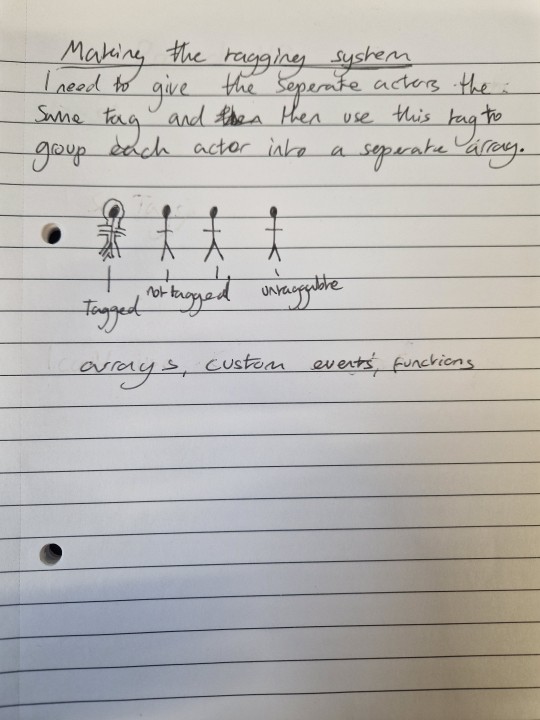 Making the tagging system
I need to give the seperate actors the
same tag and then then use this tag to
group each actor into a seperate array.
Tagged not tagged untaggable
arrays, custom events, functions